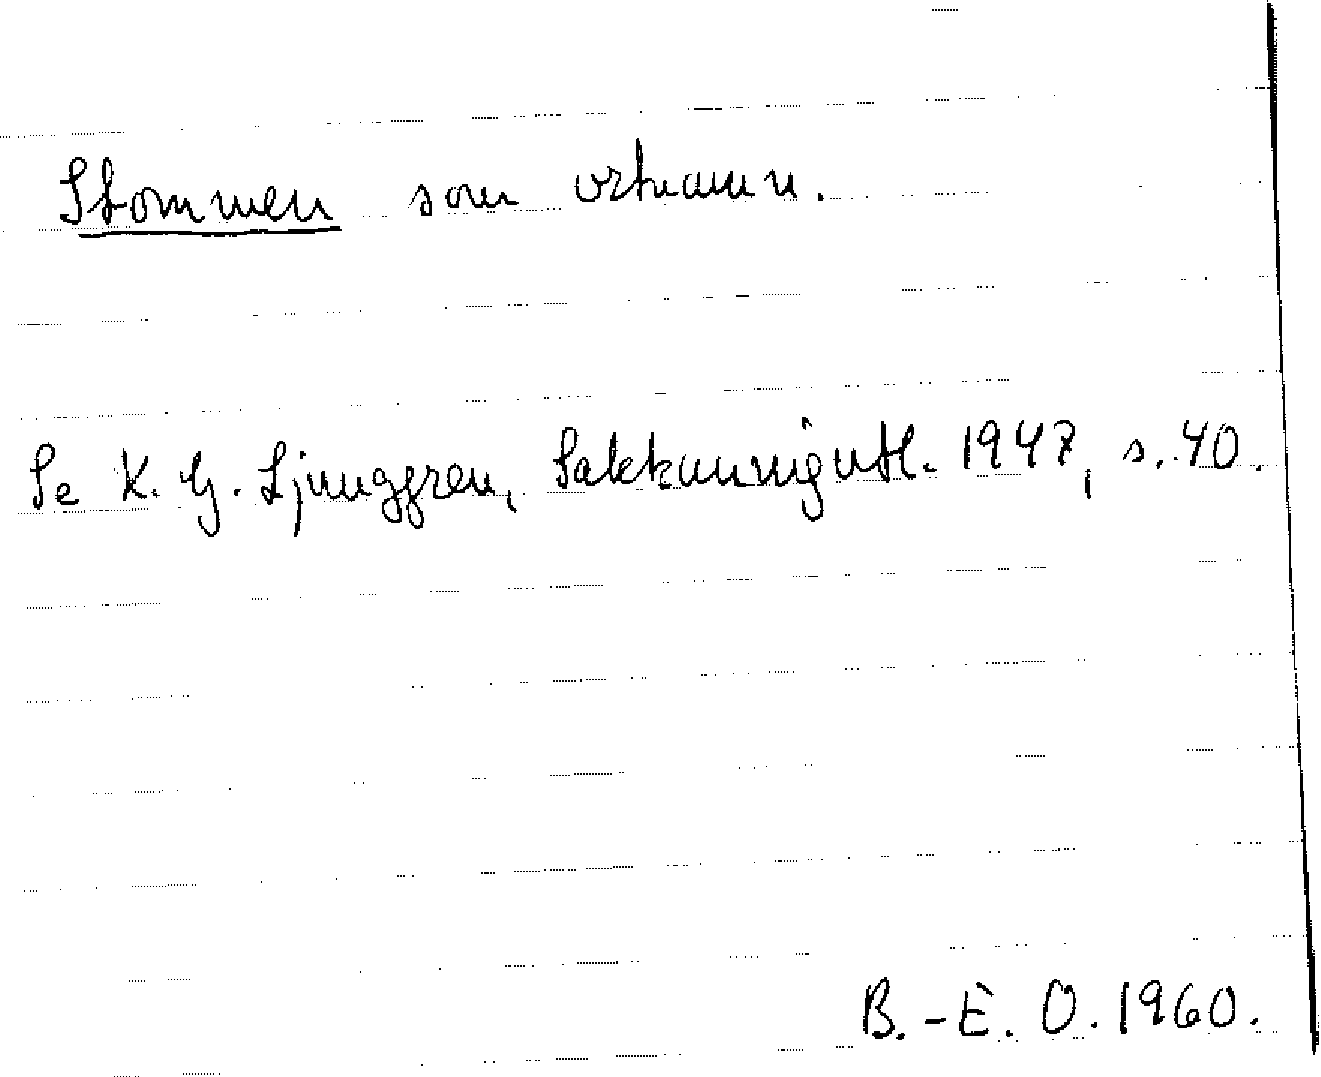 Stommen som ortnamn.
Se K. G. Ljunggren, Sakkunnigutl. 1947, s. 40.
B.-E. O. 1960.